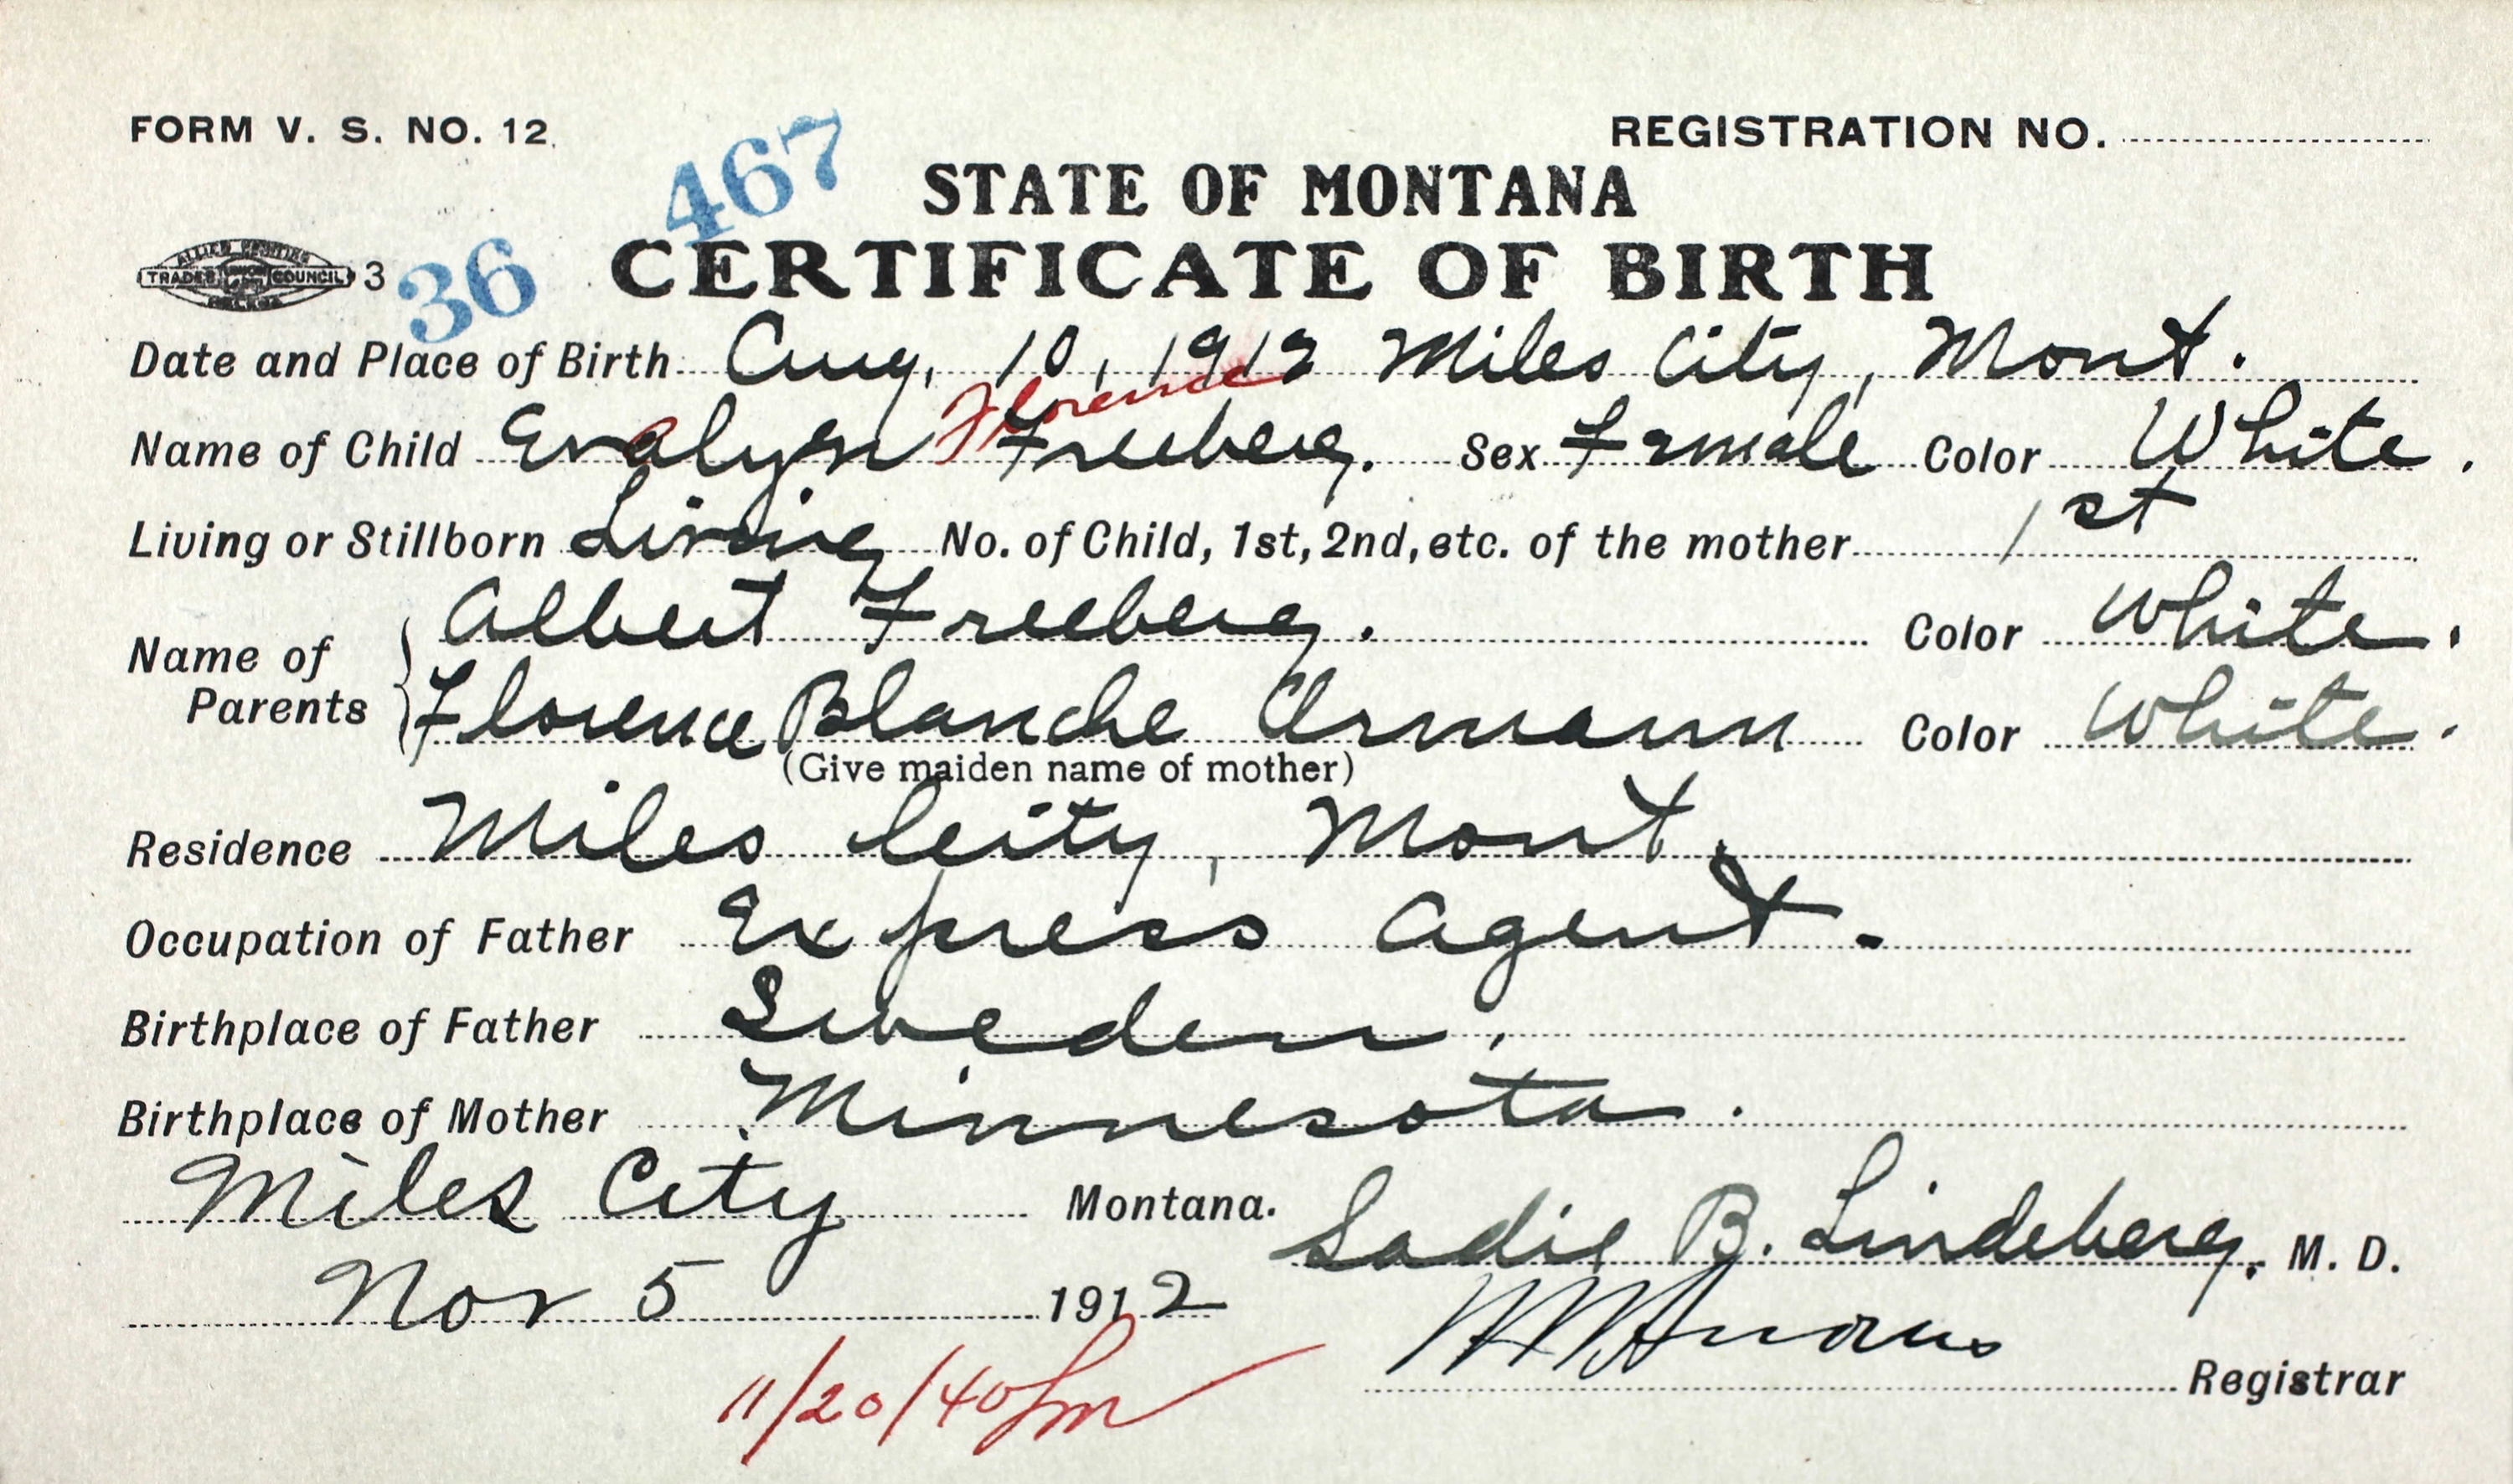 FORM V. S. NO. 12.
REGISTRATION NO.
467
STATE OF MONTANA
TRADES UNION COUNCIL 3
36
CERTIFICATE OF BIRTH
Date and Place of Birth Aug. 10, 1912 Miles City, Mont.
Florence
Name of Child Evalyn Freeberg. Sex Female Color White.
Living or Stillborn Living No. of Child, 1st, 2nd, etc. of the mother 1st
Name of Parents Albert Freeberg. Color White.
Florence Blanche Ormann Color White.
(Give maiden name of mother)
Residence Miles City, Mont.
Occupation of Father Express Agent.
Birthplace of Father Sweden.
Birthplace of Mother Minnesota.
Miles City Montana. Sadie B. Lindeberg, M. D.
Nov 5 1912
Registrar
11/20/40